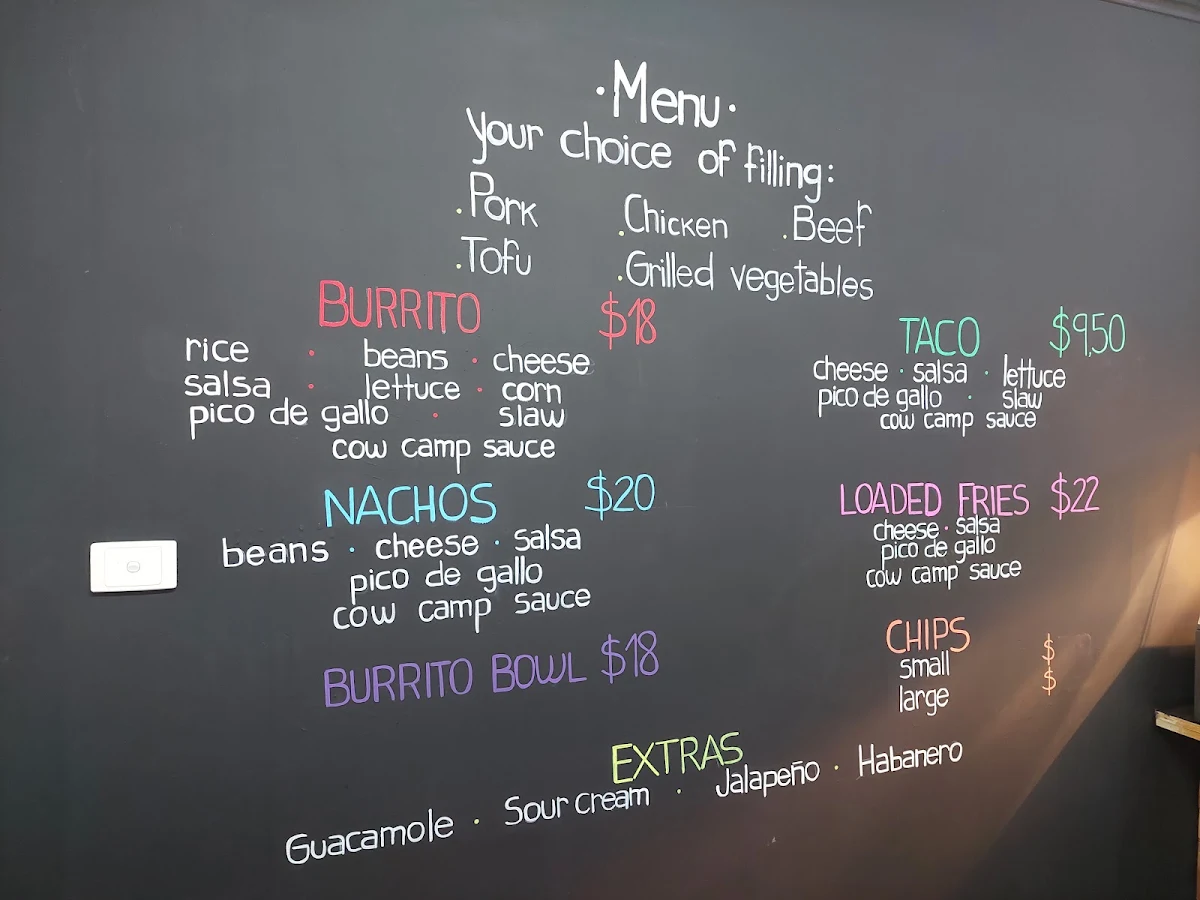 ·Menu·
Your choice of filling:
.Pork .Chicken .Beef
.Tofu .Grilled vegetables
BURRITO $18
rice · beans · cheese
salsa · lettuce · corn
pico de gallo · slaw
cow camp sauce
NACHOS $20
beans · cheese · salsa
pico de gallo
cow camp sauce
BURRITO BOWL $18
TACO $9,50
cheese · salsa · lettuce
pico de gallo · slaw
cow camp sauce
LOADED FRIES $22
cheese · salsa
pico de gallo
cow camp sauce
CHIPS
small $
large $
EXTRAS
Guacamole · Sour cream · Jalapeño · Habanero